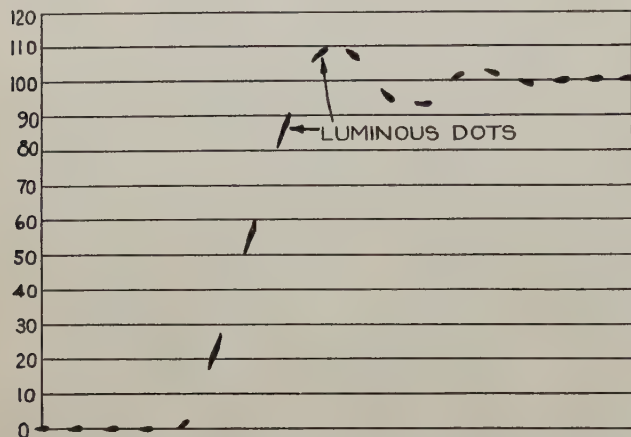 120
110
100
90
80
70
60
50
40
30
20
10
0
LUMINOUS DOTS